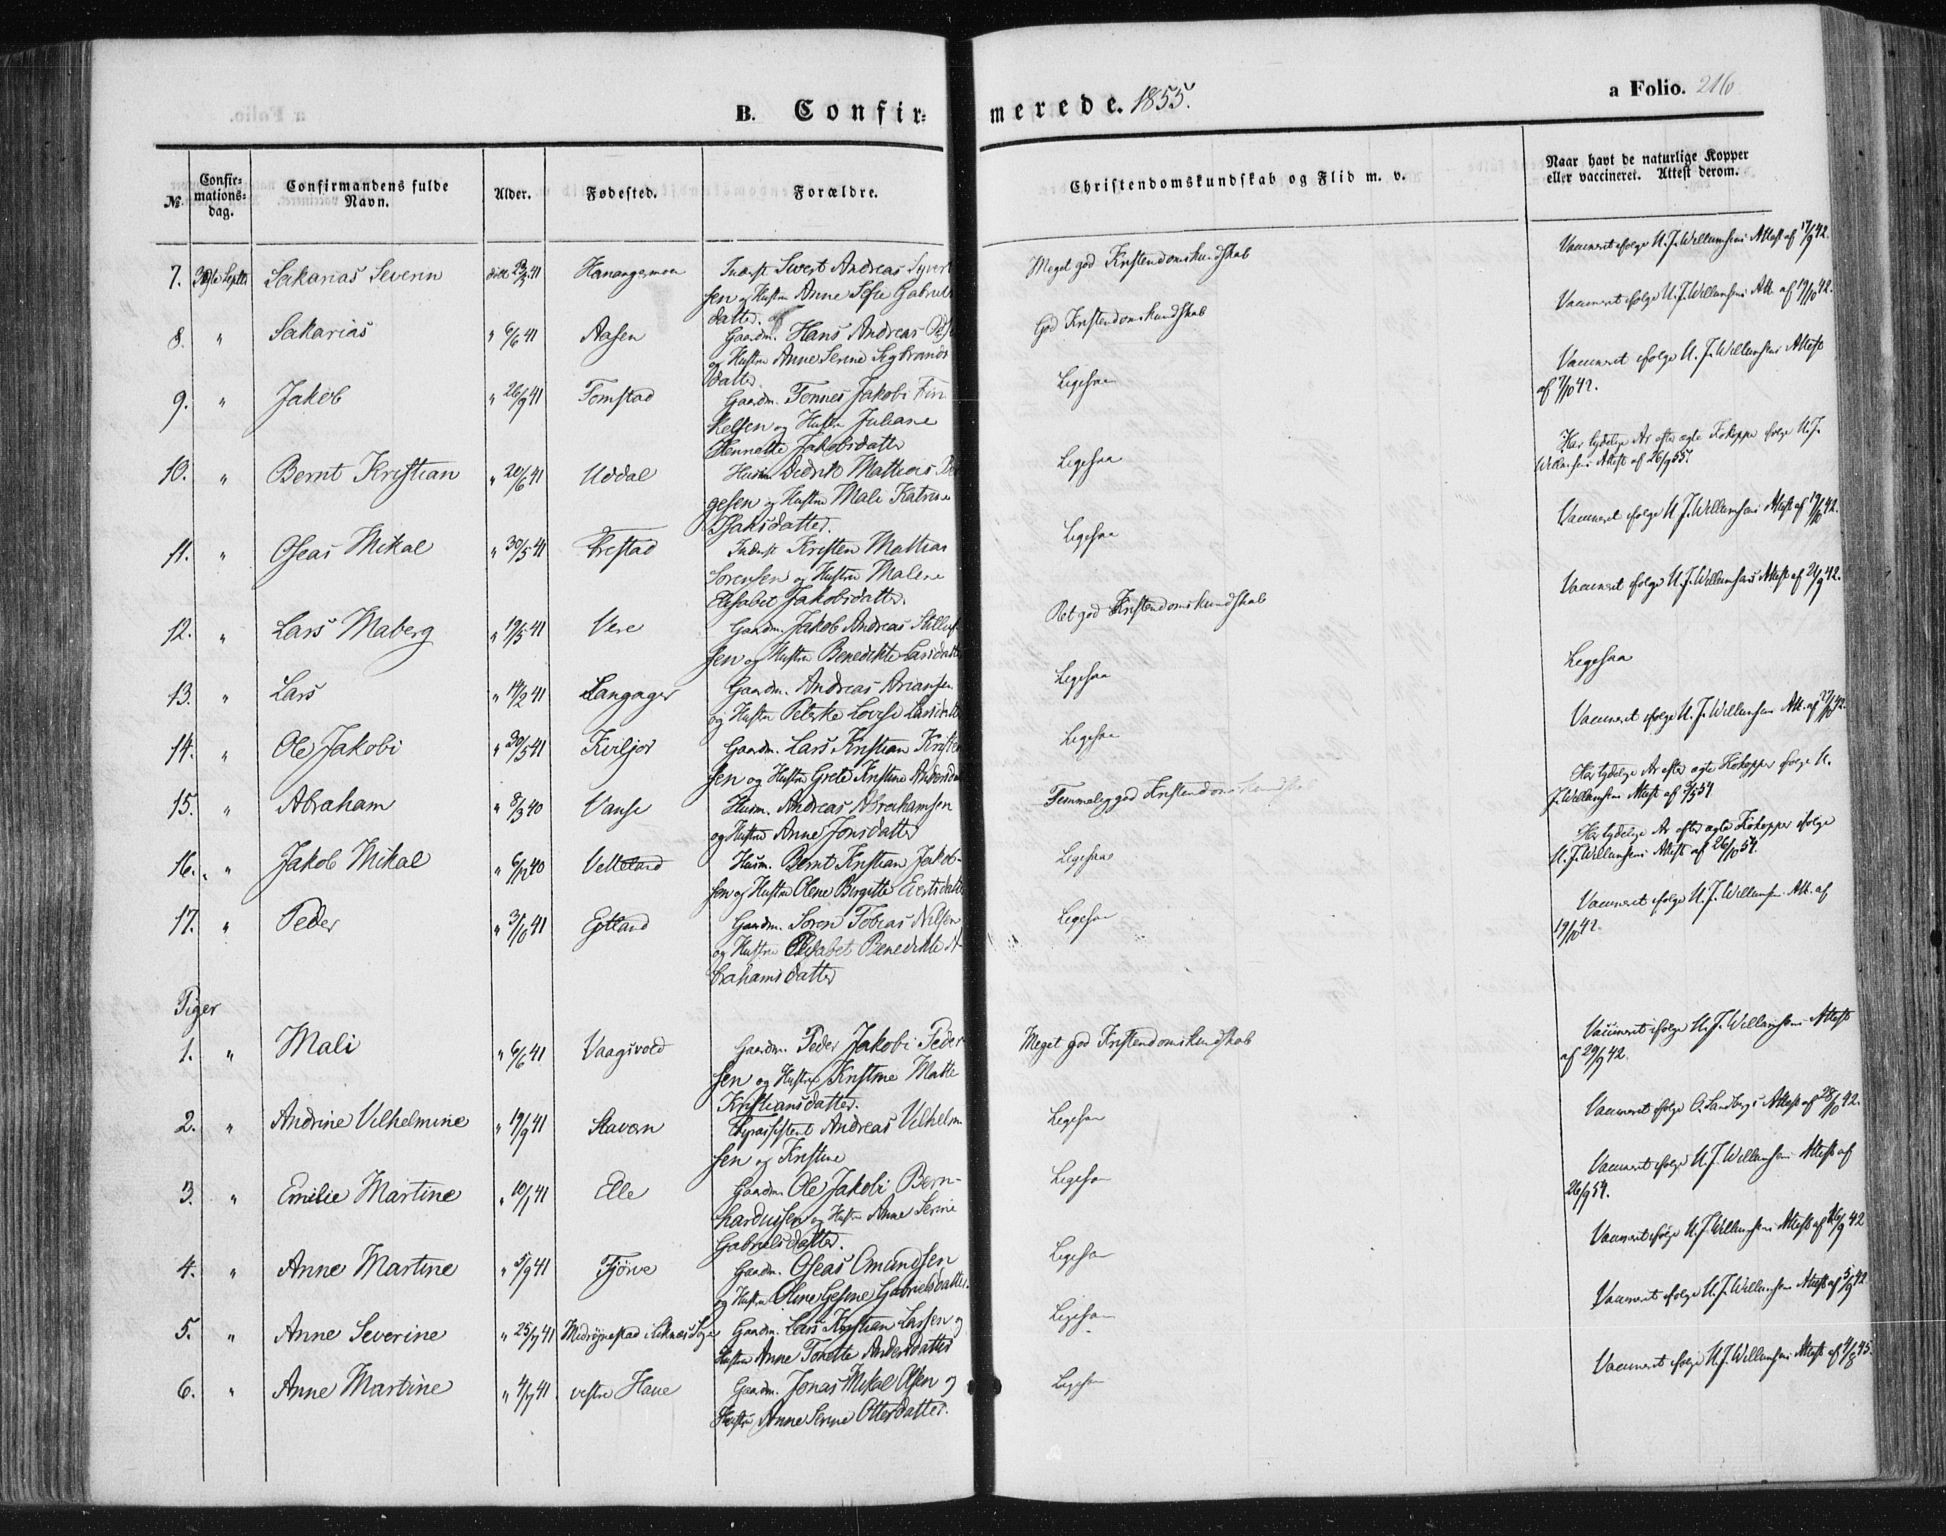 B. Confir=
merede. 1855.
a Folio. 216
№ Confir-mations-dag. Confirmandens fulde Navn. Alder. Fødested. Forældre. Christendomskundskab og Flid m. v. Naar havt de naturlige Kopper eller vaccineret. Attest derom.
7. Sakarias Severin 41 Hanangermoen Inderst Sivert Andreas Syvert
sen og Hustru Anne Sofie Gabriels
datter.
Meget god Kristendomskundskab
Vaccineret ifølge U. J. Willumsens Attest af 17/9 42.
8. " Sakarias " 6/6 41 Aasen Gaardm. Hans Andreas
og Hustru Anne Serine Sigbrands
datter.
God Kristendomskundskab
Vaccineret ifølge U. J. Willumsens Att. af 19/10 42.
9. " Jakob " 26/9 41 Tomstad Gaardm. Tønnes Jakobi
kelsen og Hustru Juliane
Hennette Jakobsdatter
Ligesaa
Vaccineret ifølge U. J. Willumsens Attest
af 7/10 42.
10. " Bernt Kristian " 20/6 41 Uddal Husm. Didrik Mathias
gesen og Hustru Mali Katrine
Isaksdatter.
Ligesaa
Har tydelige Ar efter ægte Kokopper ifølge U. J.
Willumsens Attest af 26/9 55.
11. " Oseas Mikal " 30/5 41 Inderst Kristen Mathias
Sørensen og Hustru Malene
Elisabet Jakobsdatter.
Ligesaa
Vaccineret ifølge U. J. Willumsens Attest af 19/10 42.
12. " Lars Maberg " 19/5 41 Vere Gaardm. Jakob Andreas
sen og Hustru Benedikte Larsdatter
Ret god Kristendomskundskab
Vaccineret ifølge U. J. Willumsens Attest af 21/9 42.
13. " Lars " 14/2 41 Langager Gaardm. Andreas Ariansen
og Hustru Peterke Lovise Larsdatter
Ligesaa
Ligesaa
14. " Ole Jakobi " 30/5 41 Kviljor Gaardm. Lars Kristian Kristen
sen og Hustru Grete Kristine Andersd
Ligesaa
Vaccineret ifølge U. J. Willumsens Att. af 27/10 42
15. " Abraham " 8/3 40 Vanse Husm. Andreas Abrahamsen
og Hustru Anne Jonsdatter
Temmelig god Kristendomskundskab
Har tydelige Ar efter ægte Kokopper ifølge U.
J. Willumsens Attest af 54
16. " Jakob Mikal " 6/12 40 Velleland Husm. Bernt Kristian Jakob-
sen og Hustru Olene Birgitte Evertsdatter
Ligesaa
Har tydelige Ar efter ægte Kokopper ifølge
U. J. Willumsens Attest af 26/10 54.
17. " Peder " 3/10 41 Gaardm. Soren Tobias Nilsen
og Hustru Elisabet Benedikte A-
brahamsdatter
Ligesaa
Vaccineret ifølge U. J. Willumsens Att. af
19/10 42.
Piger
1. " Mali " 6/6 41 Vaagsvold Gaardm. Peder Jakobi Peder
sen og Hustru Kristine Malle
Kristiansdatter.
Meget god Kristendomskundskab
Vaccineret ifølge U. J. Willumsens Attest
af 29/9 42.
2. " Andrine Vilhelmine " 19/9 41 Stavern Fyrassistent Andreas Vilhelm
sen og Kristine
Ligesaa
Vaccineret ifølge O. Sandbergs Attest af 28/10 42.
3. " Emilie Martine " 10/1 41 Elle Gaardm. Ole Jakobi Bern-
hardussen og Hustru Anne Serine
Gabrielsdatter.
Ligesaa
Vaccineret ifølge U. J. Willumsens Attest af
26/9 54.
4. " Anne Martine " 5/9 41 Tjørve Gaardm. Oseas Omundsen
og Hustru Oline Gesine Gabrielsdatter.
Ligesaa
Vaccineret ifølge U. J. Willumsens Attest af 16/9 42
5. " Anne Severine " 25/7 41 Gaardm. Lars Kristian Larsen og
Hustru Anne Tonette Andersdatter
Ligesaa
Vaccineret ifølge U. J. Willumsens Attest af 5/9 42
6. " Anne Martine " 4/7 41 vestre Haue Gaardm. Jonas Mikal Olsen og
Hustru Anne Serine Ottersdatter.
Ligesaa
Vaccineret ifølge U. J. Willumsens Attest af 4/8 45.